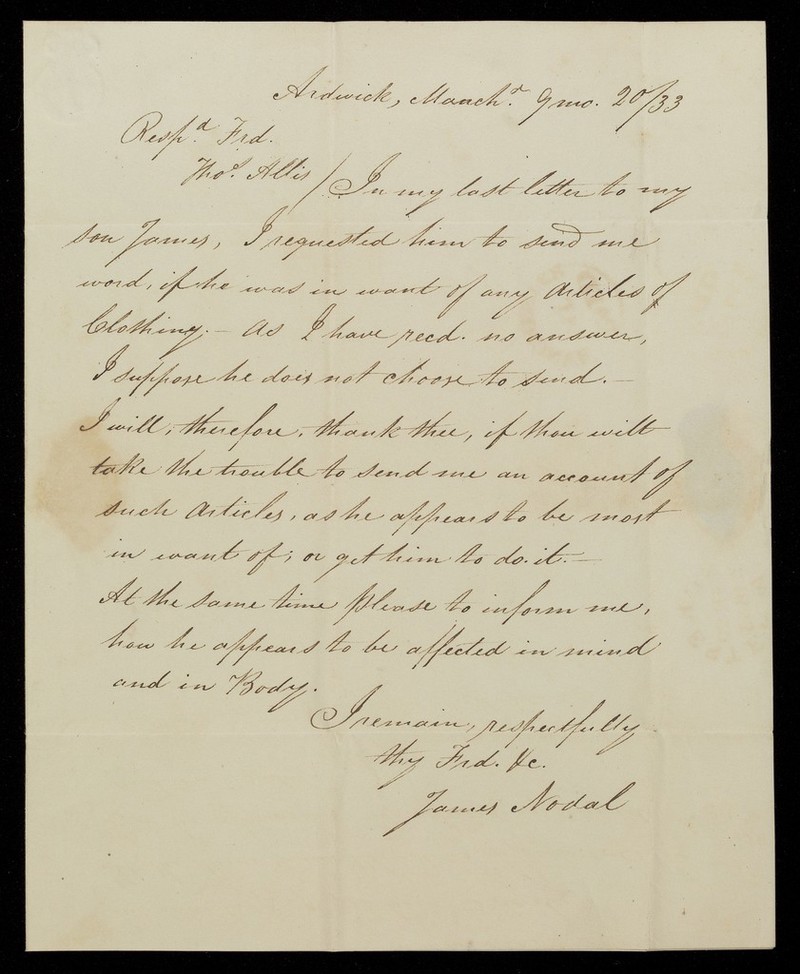 Ardwick, Manchr. 9 mo. 20/33
Respd. Frd.
Thos. Allis / In my last letter to my
son James, I requested him to send me
word, if he was in want of any Articles of
Clothing. – As I have recd. no answer,
I suppose he does not choose to send. –
I will, therefore, thank thee, if thou wilt
take the trouble to send me an account of
such Articles, as he appears to be most
in want of; or get him to do it. –
At the same time please to inform me,
how he appears to be affected in mind
and in Body.
I remain, respectfully
thy Frd. &c.
James Nodal